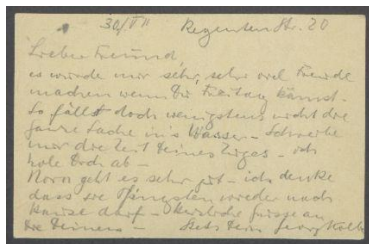 30/VII Regentenstr. 20
Lieber Freund,
es würde mir sehr, sehr viel Freude
machen wenn Du Freitag kämst.
So fällst doch wenigstens nicht die
ganze Sache in's Wasser – Schreibe
mir die Zeit Deines Zuges – ich
hole Dich ab –
geht es sehr gut – ich denke
dass sie Pfingsten wieder nach
Hause darf – Herzliche Grüsse an
die Deinen – Stets Dein Georg Kolbe